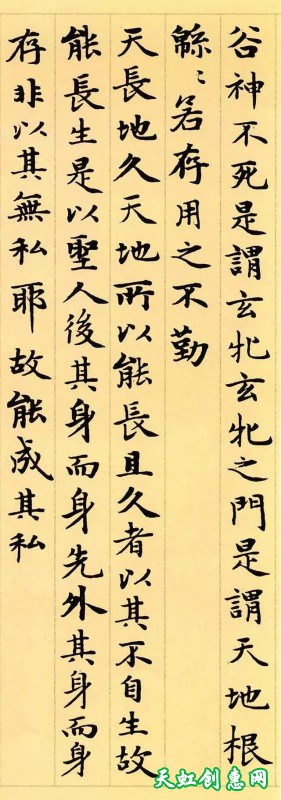 谷神不死是謂玄牝玄牝之門是謂天地根
緜〻若存用之不勤
天長地久天地所以能長且久者以其不自生故
能長生是以聖人後其身而身先外其身而身
存非以其無私耶故能成其私
天虹创意网